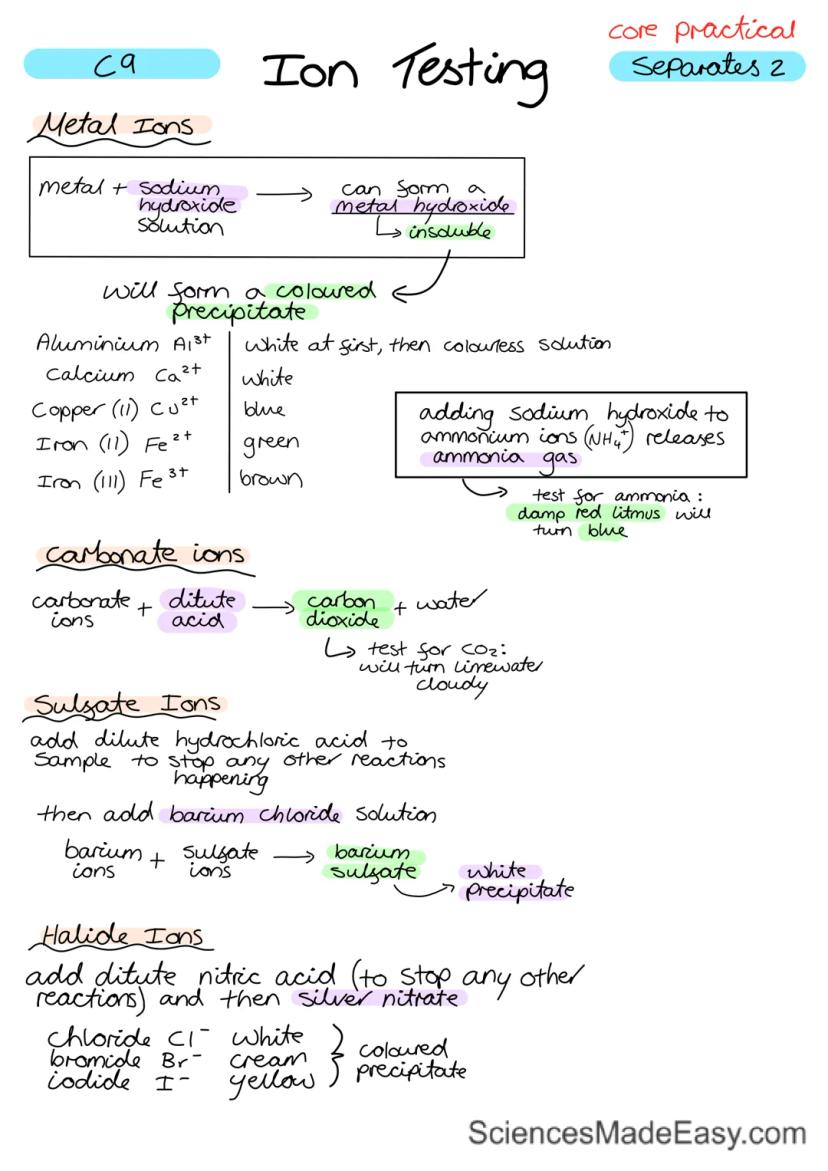 core practical
C9
Ion Testing
Separates 2
Metal Ions
metal + sodium hydroxide solution → can form a metal hydroxide
↳ insoluble
will form a coloured
precipitate
Aluminium Al³⁺ | white at first, then colourless solution
Calcium Ca²⁺ | white
Copper (II) Cu²⁺ | blue
Iron (II) Fe²⁺ | green
Iron (III) Fe³⁺ | brown
adding sodium hydroxide to
ammonium ions (NH₄⁺) releases
ammonia gas
test for ammonia:
damp red litmus will
turn blue
Carbonate ions
carbonate ions + dilute acid → carbon dioxide + water
↳ test for CO₂:
will turn limewater
cloudy
Sulfate Ions
add dilute hydrochloric acid to
sample to stop any other reactions
happening
then add barium chloride solution
barium ions + sulfate ions → barium sulfate
white
precipitate
Halide Ions
add dilute nitric acid (to stop any other
reactions) and then silver nitrate
chloride Cl⁻ white
bromide Br⁻ cream
iodide I⁻ yellow
coloured
precipitate
SciencesMadeEasy.com